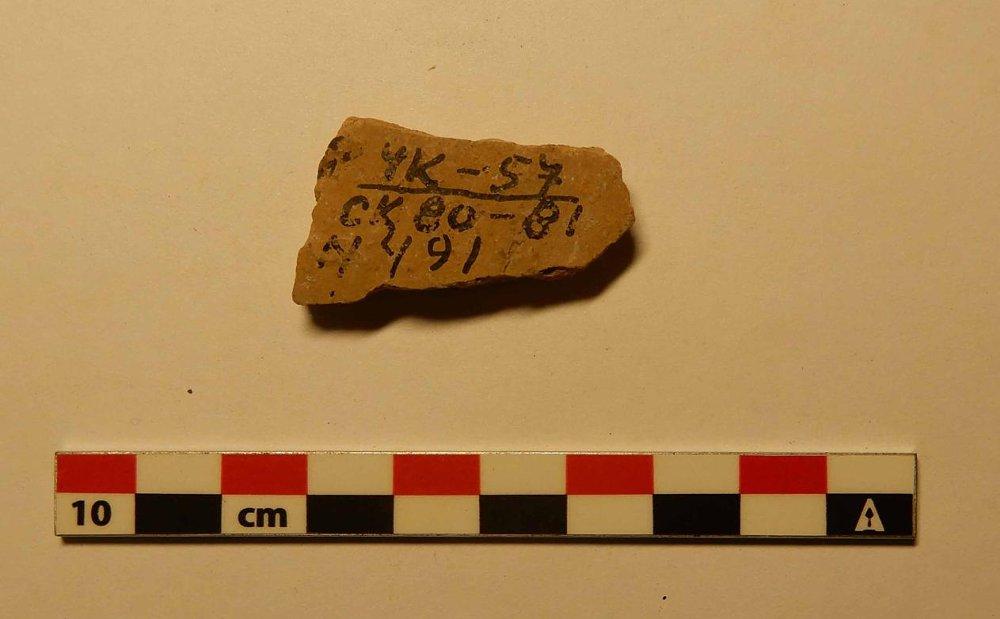 ЧК-57
СК 80-81
N 491
10 cm